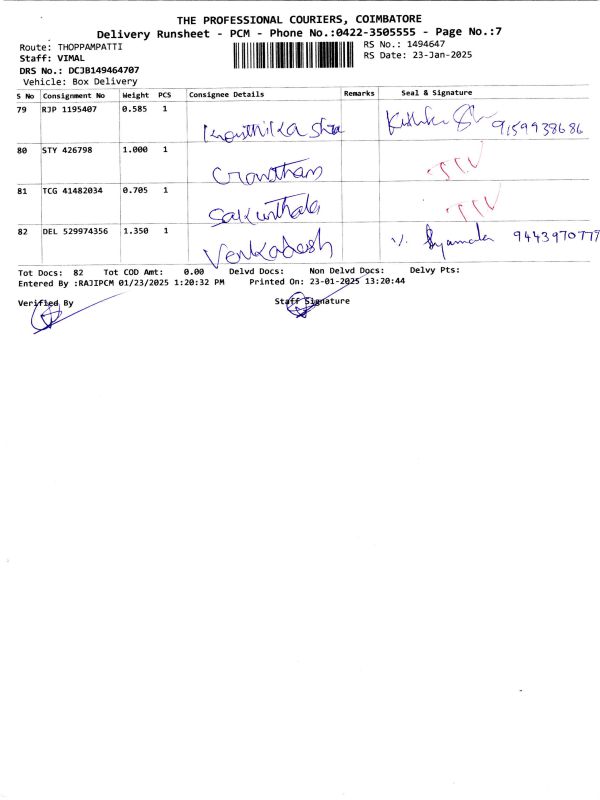 THE PROFESSIONAL COURIERS, COIMBATORE
Delivery Runsheet - PCM - Phone No.:0422-3505555 - Page No.:7
Route: THOPPAMPATTI
RS No.: 1494647
Staff: VIMAL
RS Date: 23-Jan-2025
DRS No.: DCJB149464707
Vehicle: Box Delivery
S No Consignment No Weight PCS Consignee Details Remarks Seal & Signature
79 RJP 1195407 0.585 1
9159938686
80 STY 426798 1.000 1
Gowtham
81 TCG 41482034 0.705 1
Sakunthala
82 DEL 529974356 1.350 1
Venkadesh Syamala
Tot Docs: 82 Tot COD Amt: 0.00 Delvd Docs: Non Delvd Docs: Delvy Pts:
Entered By :RAJIPCM 01/23/2025 1:20:32 PM Printed On: 23-01-2025 13:20:44
Verified By Staff Signature